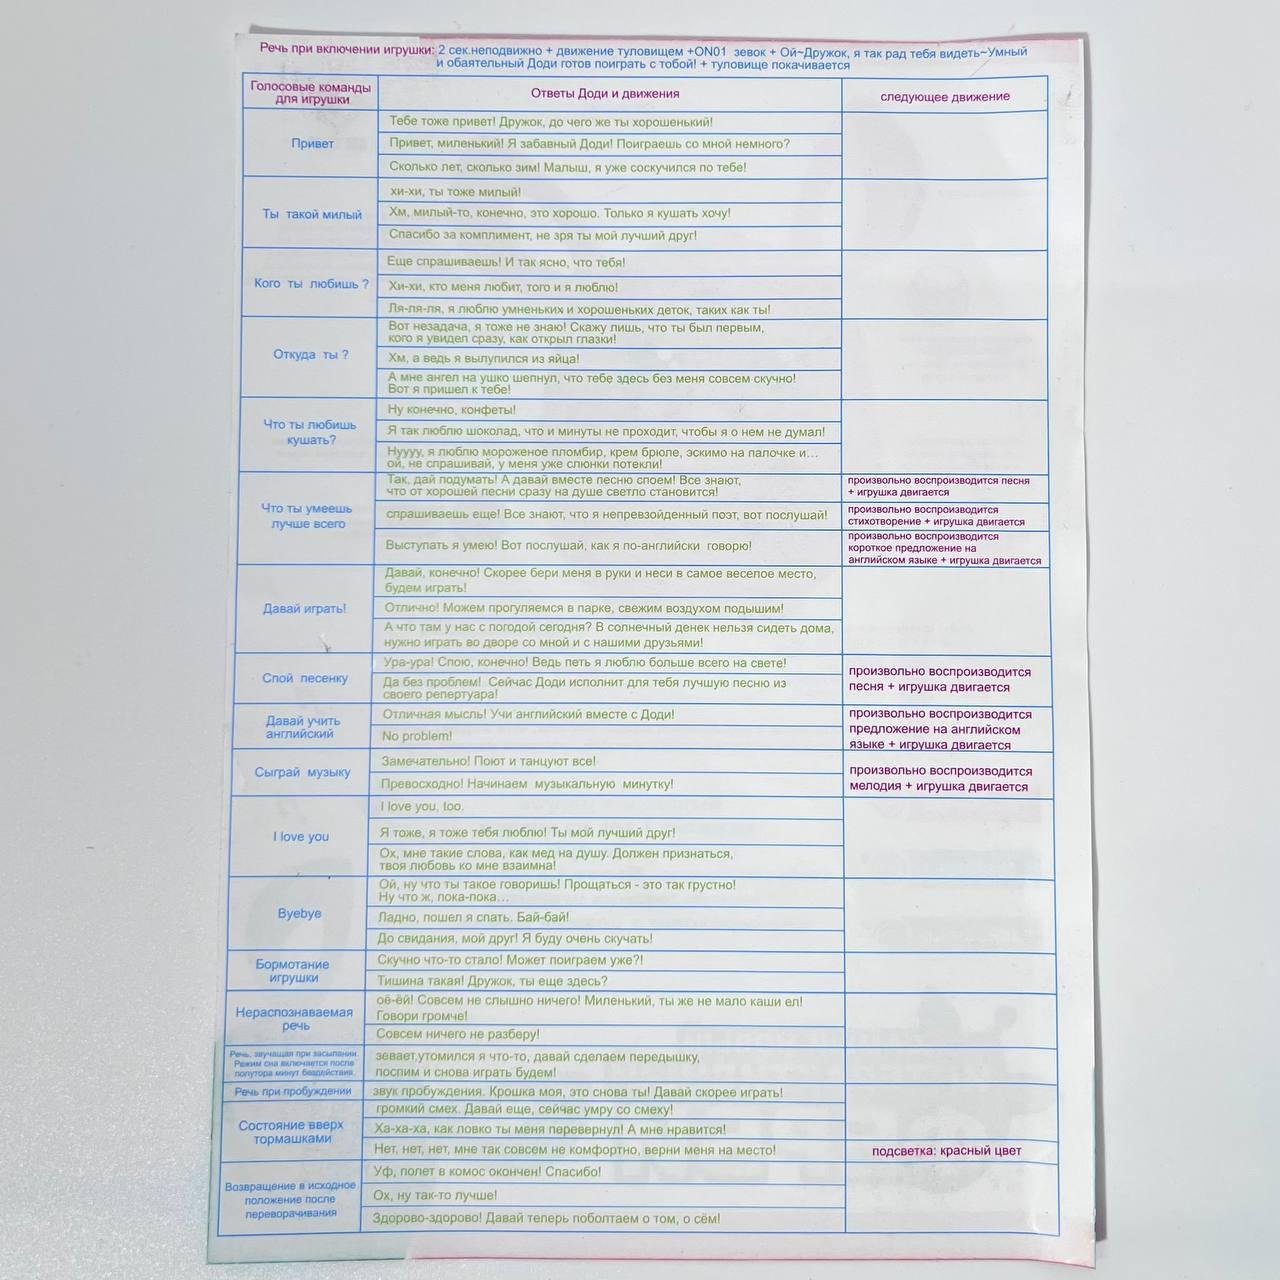 Речь при включении игрушки: 2 сек.неподвижно + движение туловищем +ON01 зевок + Ой~Дружок, я так рад тебя видеть~Умный
и обаятельный Доди готов поиграть с тобой! + туловище покачивается
Голосовые команды
для игрушки
Ответы Доди и движения
следующее движение
Привет
Тебе тоже привет! Дружок, до чего же ты хорошенький!
Привет, миленький! Я забавный Доди! Поиграешь со мной немного?
Сколько лет, сколько зим! Малыш, я уже соскучился по тебе!
Ты такой милый
хи-хи, ты тоже милый!
Хм, милый-то, конечно, это хорошо. Только я кушать хочу!
Спасибо за комплимент, не зря ты мой лучший друг!
Кого ты любишь ?
Еще спрашиваешь! И так ясно, что тебя!
Хи-хи, кто меня любит, того и я люблю!
Ля-ля-ля, я люблю умненьких и хорошеньких деток, таких как ты!
Откуда ты ?
Вот незадача, я тоже не знаю! Скажу лишь, что ты был первым,
кого я увидел сразу, как открыл глазки!
Хм, а ведь я вылупился из яйца!
А мне ангел на ушко шепнул, что тебе здесь без меня совсем скучно!
Вот я пришел к тебе!
Что ты любишь
кушать?
Ну конечно, конфеты!
Я так люблю шоколад, что и минуты не проходит, чтобы я о нем не думал!
Нуууу, я люблю мороженое пломбир, крем брюле, эскимо на палочке и...
ой, не спрашивай, у меня уже слюнки потекли!
Что ты умеешь
лучше всего
Так, дай подумать! А давай вместе песню споем! Все знают,
что от хорошей песни сразу на душе светло становится!
произвольно воспроизводится песня
+ игрушка двигается
спрашиваешь еще! Все знают, что я непревзойденный поэт, вот послушай!
произвольно воспроизводится
стихотворение + игрушка двигается
Выступать я умею! Вот послушай, как я по-английски говорю!
произвольно воспроизводится
короткое предложение на
английском языке + игрушка двигается
Давай играть!
Давай, конечно! Скорее бери меня в руки и неси в самое веселое место,
будем играть!
Отлично! Можем прогуляемся в парке, свежим воздухом подышим!
А что там у нас с погодой сегодня? В солнечный денек нельзя сидеть дома,
нужно играть во дворе со мной и с нашими друзьями!
Спой песенку
Ура-ура! Спою, конечно! Ведь петь я люблю больше всего на свете!
Да без проблем! Сейчас Доди исполнит для тебя лучшую песню из
своего репертуара!
произвольно воспроизводится
песня + игрушка двигается
Давай учить
английский
Отличная мысль! Учи английский вместе с Доди!
No problem!
произвольно воспроизводится
предложение на английском
языке + игрушка двигается
Сыграй музыку
Замечательно! Поют и танцуют все!
Превосходно! Начинаем музыкальную минутку!
произвольно воспроизводится
мелодия + игрушка двигается
I love you
I love you, too.
Я тоже, я тоже тебя люблю! Ты мой лучший друг!
Ох, мне такие слова, как мед на душу. Должен признаться,
твоя любовь ко мне взаимна!
Byebye
Ой, ну что ты такое говоришь! Прощаться - это так грустно!
Ну что ж, пока-пока...
Ладно, пошел я спать. Бай-бай!
До свидания, мой друг! Я буду очень скучать!
Бормотание
игрушки
Скучно что-то стало! Может поиграем уже?!
Тишина такая! Дружок, ты еще здесь?
Нераспознаваемая
речь
оё-ёй! Совсем не слышно ничего! Миленький, ты же не мало каши ел!
Говори громче!
Совсем ничего не разберу!
Речь, звучащая при засыпании.
Режим сна включается после
полутора минут бездействия.
зевает,утомился я что-то, давай сделаем передышку,
поспим и снова играть будем!
Речь при пробуждении
звук пробуждения. Крошка моя, это снова ты! Давай скорее играть!
Состояние вверх
тормашками
громкий смех. Давай еще, сейчас умру со смеху!
Ха-ха-ха, как ловко ты меня перевернул! А мне нравится!
Нет, нет, нет, мне так совсем не комфортно, верни меня на место!
подсветка: красный цвет
Возвращение в исходное
положение после
переворачивания
Уф, полет в комос окончен! Спасибо!
Ох, ну так-то лучше!
Здорово-здорово! Давай теперь поболтаем о том, о сём!